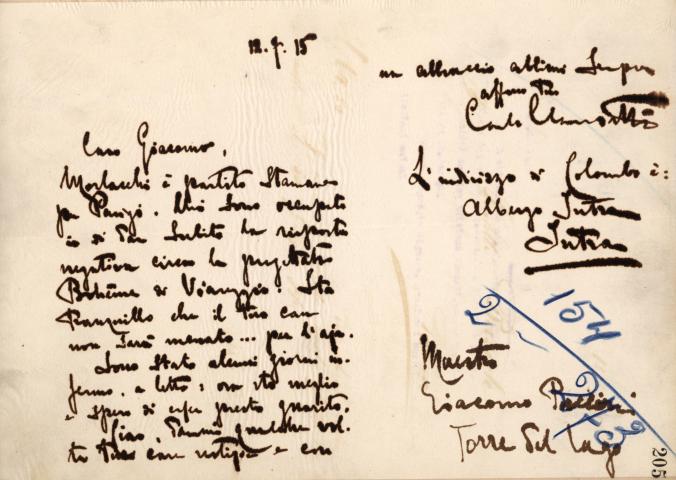 12.7.15
Caro Giacomo,
Morlacchi è partito stamane
per Parigi. Mi sono occupato
io di dar subito la risposta
negativa circa la progettata
Bohème di Viareggio. Sta
tranquillo che il tuo can
non sarà menato... per l'aja.
Sono stato alcuni giorni in-
fermo, a letto; ora sto meglio
e spero di esser presto guarito.
Ciao, dammi qualche vol-
ta tue care notizie e con
un abbraccio abbimi sempre
affmo tuo
Carlo Clausetti
L'indirizzo di Colombo è:
Albergo Intra
Intra
154
Maestro
Giacomo Puccini
Torre del Lago
205